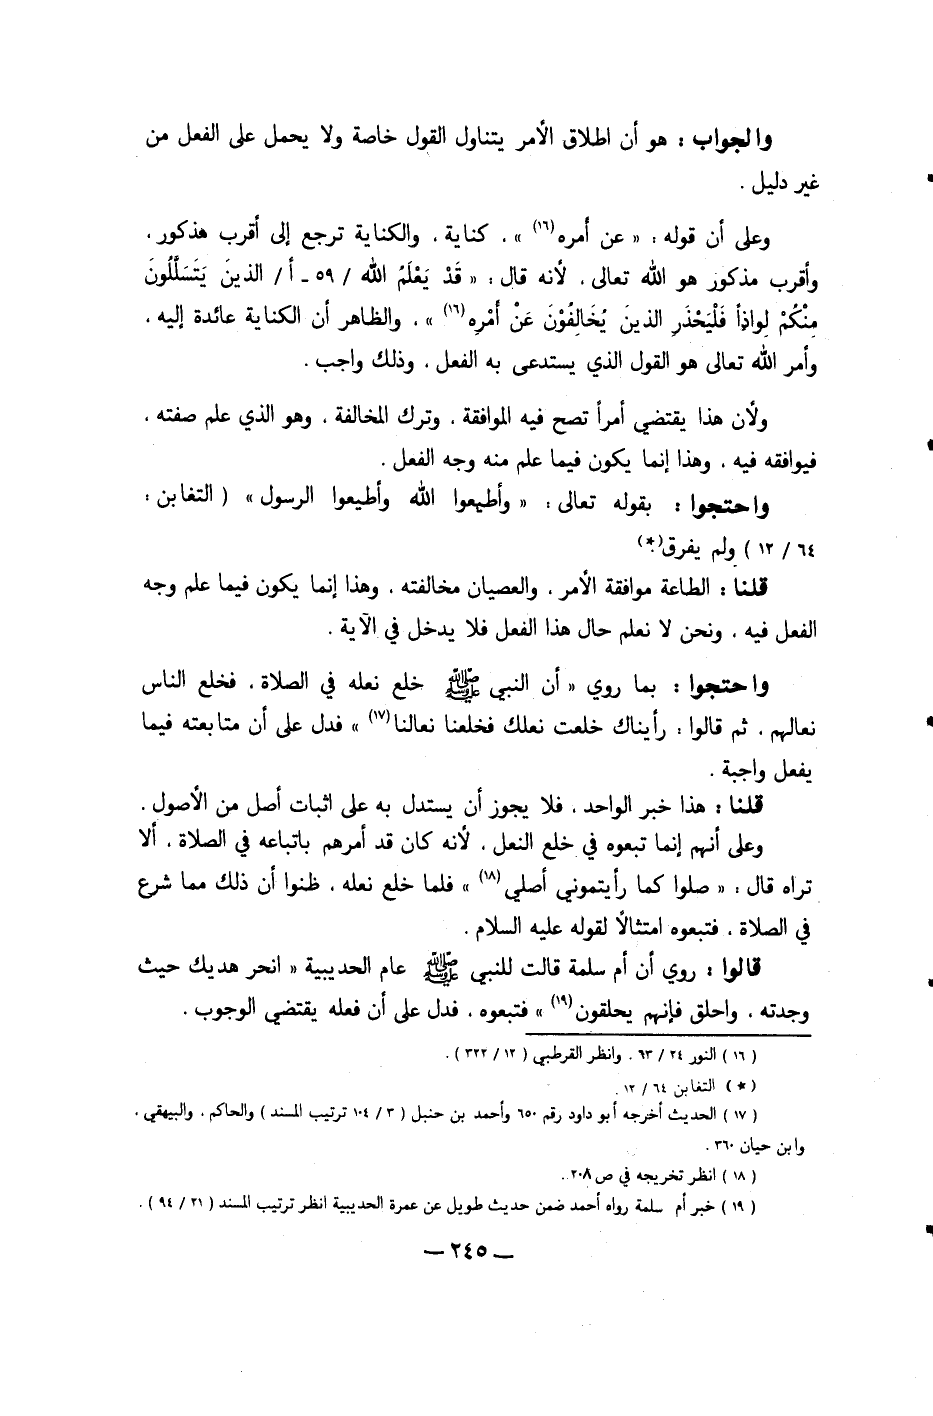 والجواب : هو أن اطلاق الأمر يتناول القول خاصة ولا يحمل على الفعل من
غير دليل .
وعلى أن قوله : « عن أمره (١٦) » ، كناية ، والكناية ترجع إلى أقرب هذكور ،
وأقرب مذكور هو الله تعالى ، لأنه قال : « قَدْ يَعْلَمُ الله / ٥٩ ـ أ / الذينَ يَتَسَلَّلُونَ
مِنْكُمْ لِواذاً فَلْيَحْذَرِ الذينَ يُخَالِفُوْنَ عَنْ أَمْرِه (١٦) » ، والظاهر أن الكناية عائدة إليه ،
وأمر الله تعالى هو القول الذي يستدعى به الفعل ، وذلك واجب .
ولأن هذا يقتضي أمراً تصح فيه الموافقة ، وترك المخالفة ، وهو الذي علم صفته ،
فيوافقه فيه ، وهذا إنما يكون فيما علم منه وجه الفعل .
واحتجوا : بقوله تعالى : « وأطيعوا الله وأطيعوا الرسول » ( التغابن :
٦٤ / ١٢ ) ولم يفرق(*)
قلنا : الطاعة موافقة الأمر ، والعصيان مخالفته ، وهذا إنما يكون فيما علم وجه
الفعل فيه ، ونحن لا نعلم حال هذا الفعل فلا يدخل في الآية .
واحتجوا : بما روي « أن النبي ﷺ خلع نعله في الصلاة ، فخلع الناس
نعالهم ، ثم قالوا : رأيناك خلعت نعلك فخلعنا نعالنا (١٧) » فدل على أن متابعته فيما
يفعل واجبة .
قلنا : هذا خبر الواحد ، فلا يجوز أن يستدل به على اثبات أصل من الأصول .
وعلى أنهم إنما تبعوه في خلع النعل ، لأنه كان قد أمرهم باتباعه في الصلاة ، ألا
تراه قال : « صلوا كما رأيتموني أصلي (١٨) » فلما خلع نعله ، ظنوا أن ذلك مما شرع
في الصلاة ، فتبعوه امتثالاً لقوله عليه السلام .
قالوا : روي أن أم سلمة قالت للنبي ﷺ عام الحديبية « انحر هديك حيث
وجدته ، واحلق فإنهم يحلقون (١٩) » فتبعوه ، فدل على أن فعله يقتضي الوجوب .
( ١٦ ) النور ٢٤ / ٦٣ . وانظر القرطبي ( ١٢ / ٣٢٢ ) .
( * ) التغابن ٦٤ / ١٢ .
( ١٧ ) الحديث أخرجه أبو داود رقم ٦٥٠ وأحمد بن حنبل ( ٣ / ١٠٤ ترتيب المسند ) والحاكم ، والبيهقي ،
وابن حيان ٣٦٠ .
( ١٨ ) انظر تخريجه في ص ٢٠٨ .
( ١٩ ) خبر أم سلمة رواه أحمد ضمن حديث طويل عن عمرة الحديبية انظر ترتيب المسند ( ٢١ / ٩٤ ) .
— ٢٤٥ —